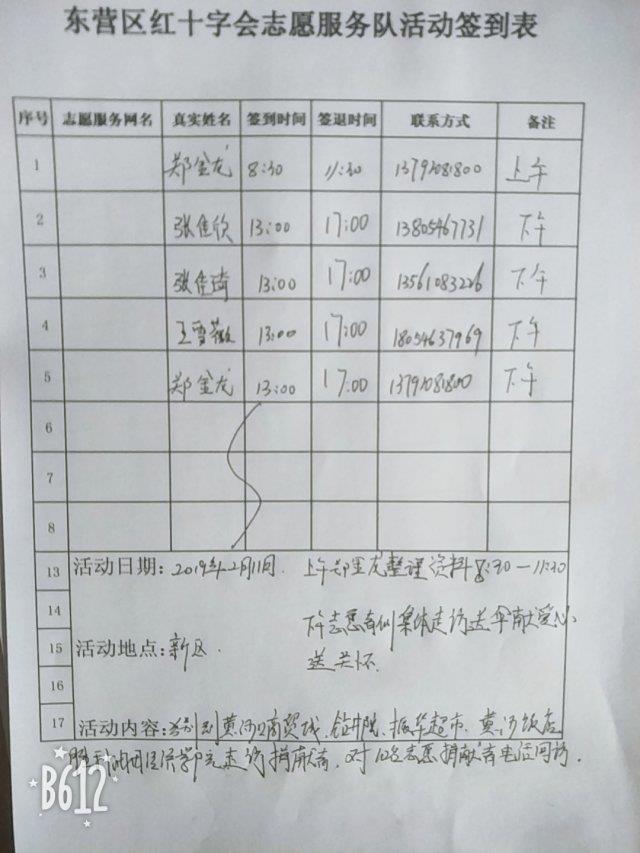 东营区红十字会志愿服务队活动签到表
序号 志愿服务网名 真实姓名 签到时间 签退时间 联系方式 备注
1 郑金龙 8:30 11:30 13792081800 上午
2 张佳欣 13:00 17:00 13805467731 下午
3 张佳琦 13:00 17:00 13561083226 下午
4 王雪薇 13:00 17:00 18054637969 下午
5 郑金龙 13:00 17:00 13792081800 下午
6
7
8
13 活动日期: 2019年2月11日. 上午郑金龙整理资料8:30—11:30
14 下午志愿者们集体走访送伞献爱心,
15 活动地点: 新区. 送关怀.
16
17 活动内容: 分别到黄河口商贸城、钻井院、振华超市、黄河饭店
走访捐献者,对10名志愿捐献者电话回访.
B612